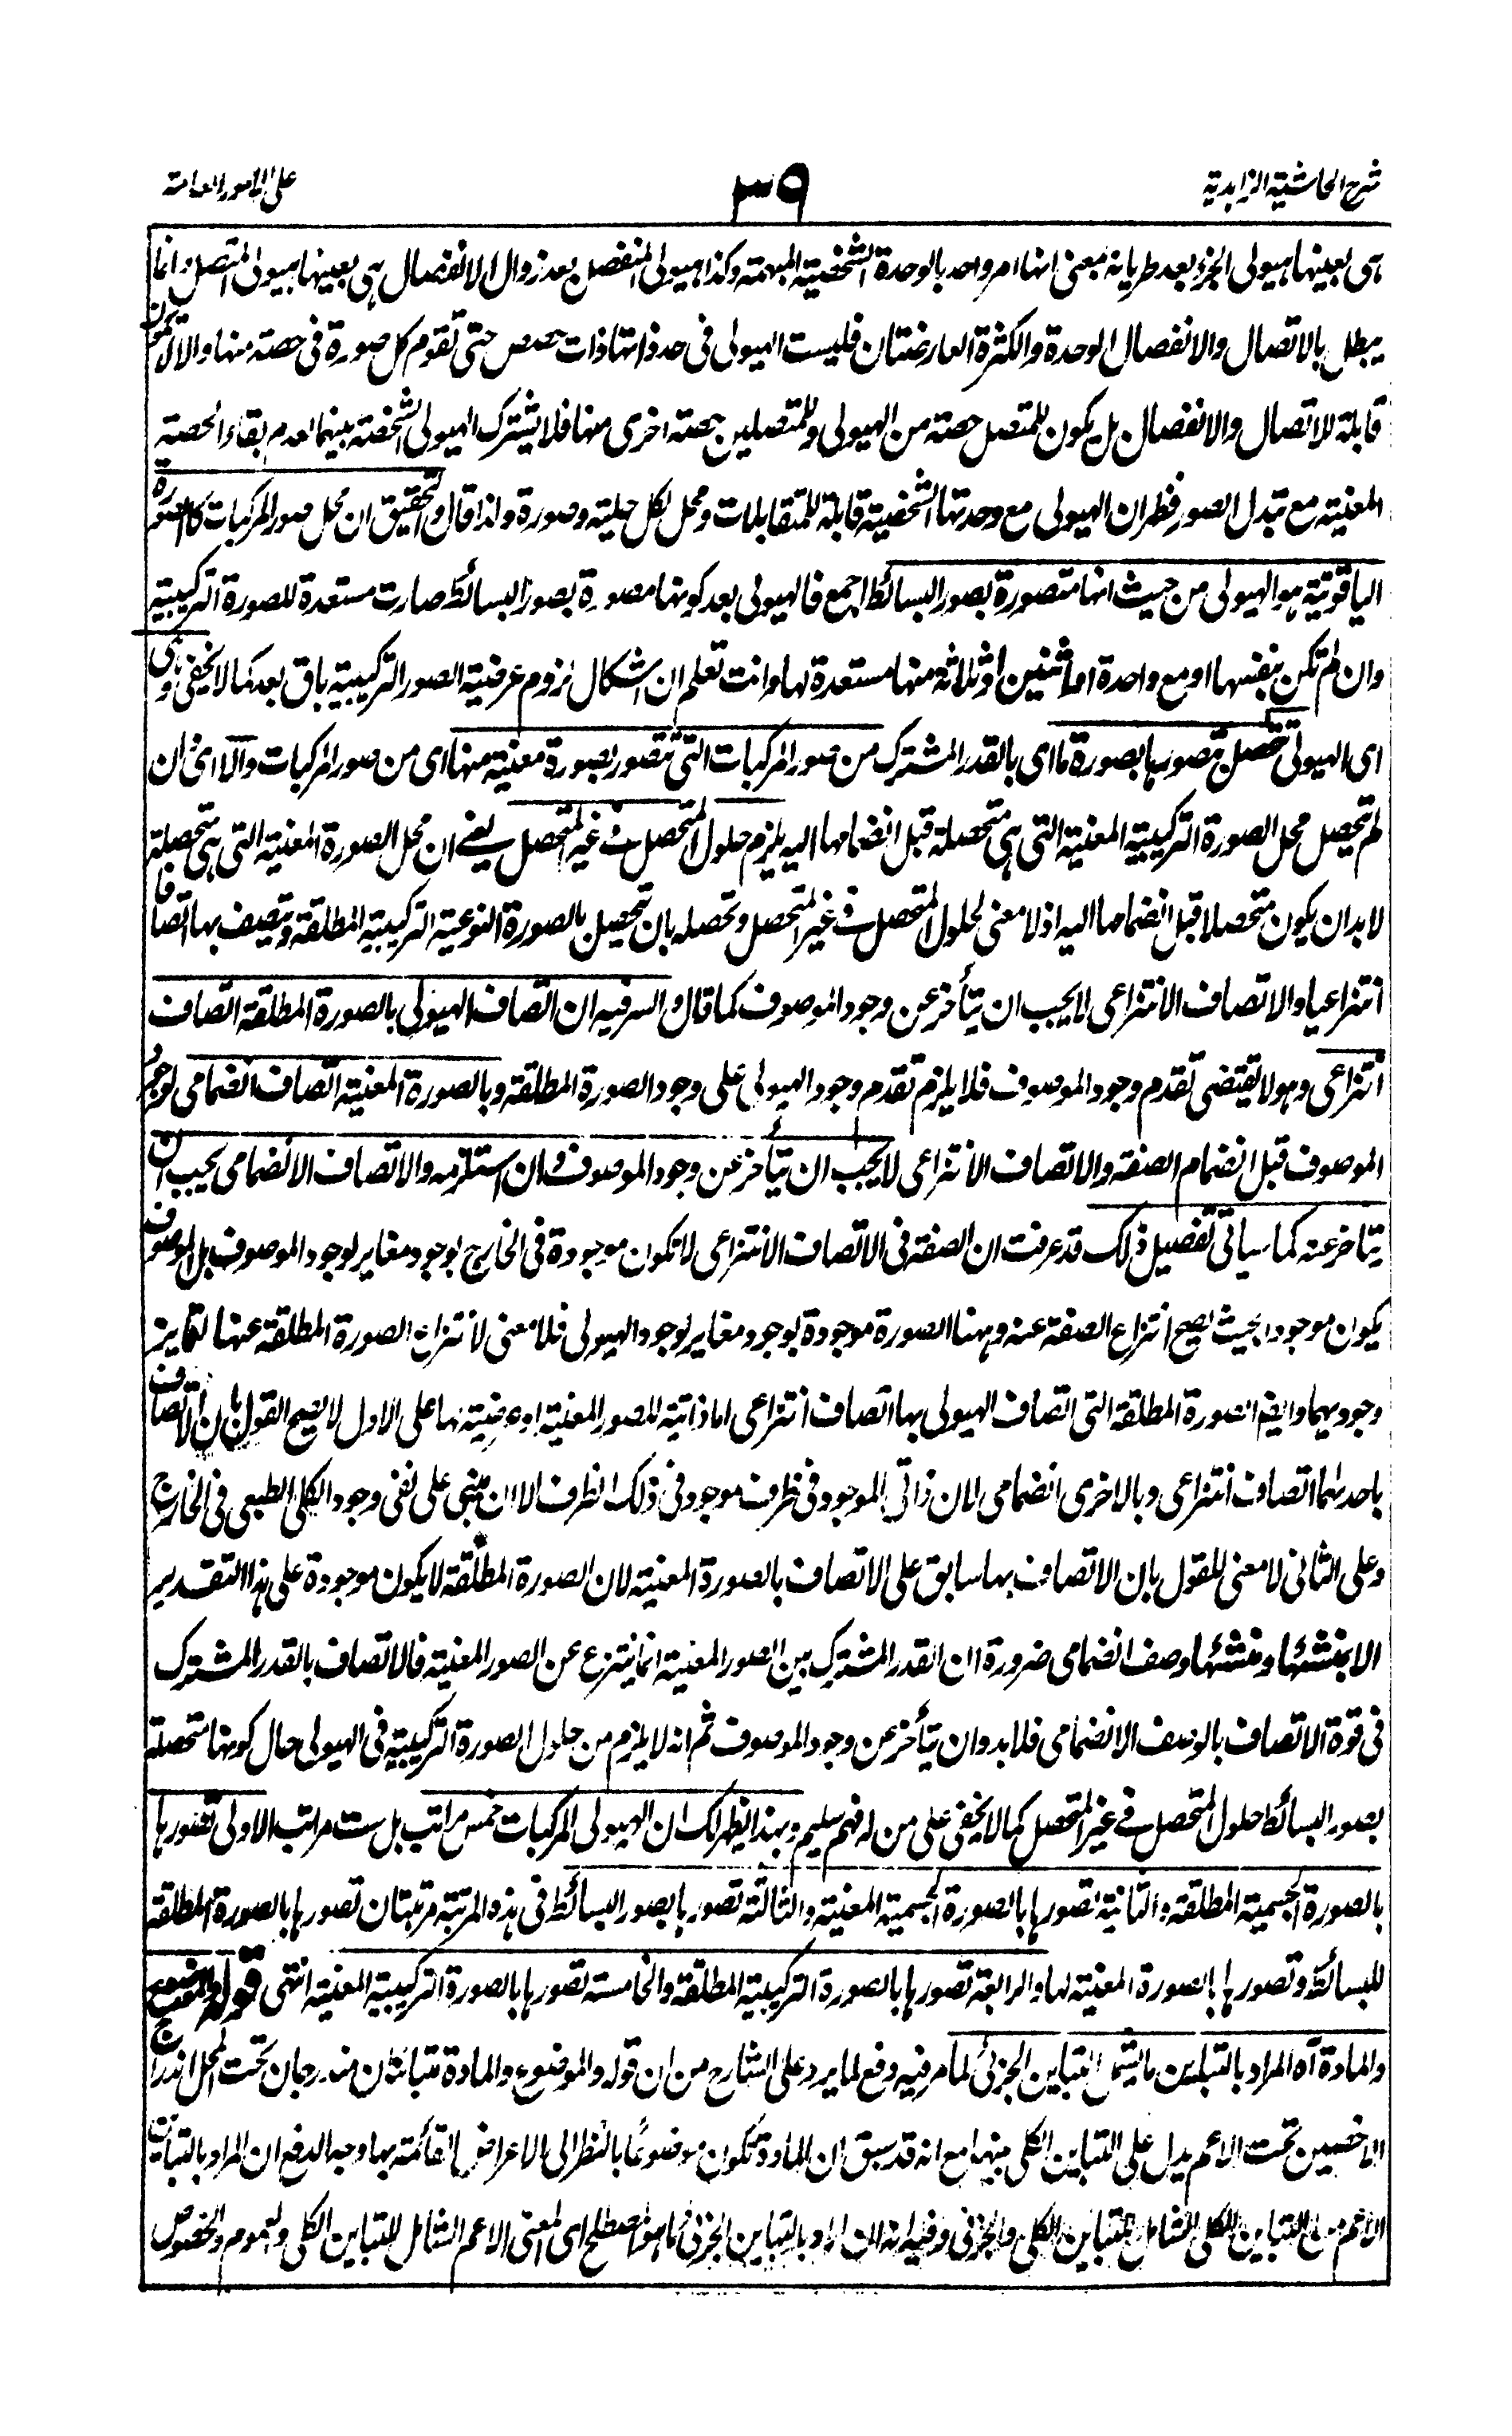 شرح الحاشية الزاهدية
٣٩
على الامور العامة
هى بعينها هيولى الجزء بعد طريانه بمعنى انها امر واحد بالوحدة الشخصية المبهمة وكذا هيولى المنفصل بعد زوال الانفصال هى بعينها هيولى المتصل وانما
يبطل بالاتصال والانفصال الوحدة والكثرة العارضتان فليست الهيولى فى حد ذاتها ذات حصص حتى تقوم كل صورة فى حصته منها والا لا تكون
قابلة للاتصال والانفصال بل يكون للمتصل حصته من الهيولى وللمتصلين حصته اخرى منها فلا يشترك الهيولى الشخصية بينهما لعدم بقاء الحصة
المعنية مع تبدل الصور فظهر ان الهيولى مع وحدتها الشخصية قابلة للمتقابلات ومحل لكل حلية وصورة ولذا قال والتحقيق ان محل صور المركبات كالصورة
الياقوتية هو الهيولى من حيث انها متصورة بصور البسائط اجمع فالهيولى بعد كونها مصورة بصور البسائط صارت مستعدة للصورة التركيبية
وان لم تكن بنفسها او مع واحدة او اثنين او ثلاثة منها مستعدة لها وانت تعلم ان اشكال لزوم عرضية الصور التركيبية باق بعد كما لا يخفى وهى
اى الهيولى تحصل بتصورها بصورة ما اى بالقدر المشترك من صور المركبات التى تتصور بصورة معنية منها اى من صور المركبات والا اى ان
لم تتحصل محل الصورة التركيبية المعنية التى هى متحصلة قبل انضمامها اليه يلزم حلول المتحصل فى غير المتحصل يعنى ان محل الصورة المعنية التى هى متحصلة
لا بد ان يكون متحصلا قبل انضمامها اليه اذ لا معنى لحلول المتحصل فى غير المتحصل وتحصله بان تتحصل بالصورة النوعية التركيبية المطلقة وتتصف بها اتصافا
انتزاعيا والاتصاف الانتزاعى لا يجب ان يتأخر عن وجود الموصوف كما قال والسر فيه ان اتصاف الهيولى بالصورة المطلقة اتصاف
انتزاعى وهو لا يقتضى تقدم وجود الموصوف فلا يلزم تقدم وجود الهيولى على وجود الصورة المطلقة وبالصورة المعنية اتصاف انضمامى لوجود
الموصوف قبل انضمام الصفة والاتصاف الانتزاعى لا يجب ان يتأخر عن وجود الموصوف وان استلزمه والاتصاف الانضمامى يجب ان
يتاخر عنه كما سياتى تفصيل ذلك قد عرفت ان الصفة فى الاتصاف الانتزاعى لا تكون موجودة فى الخارج بوجود مغاير لوجود الموصوف بل الموصوف
يكون موجودا بحيث يصح انتزاع الصفة عنه وههنا الصورة موجودة بوجود مغاير لوجود الهيولى فلا معنى لانتزاع الصورة المطلقة عنها لتمايز
وجوديهما وايضا الصورة المطلقة التى اتصاف الهيولى بها اتصاف انتزاعى اما ذاتية للصور المعنية او عرضية لها على الاول لا يصح القول بان الاتصاف
باحدهما اتصاف انتزاعى وبالاخرى انضمامى لان ذاتى الموجود فى ظرف موجود فى ذلك الظرف الا ان يبنى على نفى وجود الكلى الطبعى فى الخارج
وعلى الثانى لا معنى للقول بان الاتصاف بها سابق على الاتصاف بالصورة المعنية لان الصورة المطلقة لا يكون موجودة على هذا التقدير
الا بمنشئها ومنشئها وصف انضمامى ضرورة ان القدر المشترك بين الصور المعنية انما ينتزع عن الصور المعنية فالاتصاف بالقدر المشترك
فى قوة الاتصاف بالوصف الانضمامى فلا بد وان يتأخر عن وجود الموصوف ثم انه لا يلزم من حلول الصورة التركيبية فى الهيولى حال كونها متحصلة
بصور البسائط حلول المتحصل فى غير المتحصل كما لا يخفى على من له فهم سليم وبهذا يظهر لك ان الهيولى المركبات خمس مراتب بل ست مراتب الاولى تصورها
بالصورة الجسمية المطلقة والثانية تصورها بالصورة الجسمية المعنية والثالثة تصورها بصور البسائط فى هذه المرتبة مرتبتان تصورها بالصورة المطلقة
للبسائط وتصورها بالصورة المعنية لها والرابعة تصورها بالصورة التركيبية المطلقة والخامسة تصورها بالصورة التركيبية المعنية انتهى قوله والموضوع
والمادة آه المراد بالتباين ما يشمل التباين الجزئى لما مر فيه دفع لما يرد على الشارح من ان قوله والموضوع والمادة متباينان مندرجان تحت المحل اندراج
الاخصين تحت الاعم يدل على التباين الكلى بينهما مع انه قد سبق ان المادة تكون موضوعًا بالنظر الى الاعراض القائمة بها وجه الدفع ان المراد بالتباين
الاعم من التباين الكلى الشامل للتباين الكلى والجزئى وفيه انه ان اراد بالتباين الجزئى ما هو المصطلح اى المعنى الاعم الشامل للتباين الكلى والعموم والخصوص